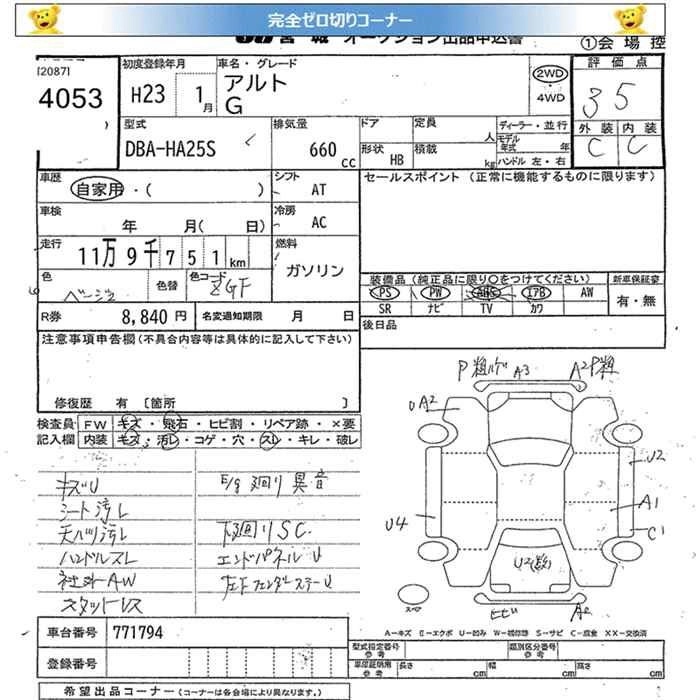 完全ゼロ切りコーナー
宮城 オークション出品申込書 ①会場控
[2087]
4053
初度登録年月 H23 1月
車名・グレード
アルト
G
2WD
4WD
評価点
35
外装 内装
C C
型式
DBA-HA25S
排気量
660 cc
ドア 形状 HB
定員 人
積載 kg
ディーラー・並行
モデル年式 年
ハンドル 左・右
車歴 自家用・( )
シフト AT
セールスポイント (正常に機能するものに限ります)
車検 年 月( 日)
冷房 AC
走行 11万9千751km
燃料 ガソリン
色 ベージュ
色替
色コード ZGF
装備品(純正品に限り○をつけてください)
新車保証書
PS PW ABS エアB AW
有・無
SR ナビ TV カワ
R券 8,840円
名変通知期限 月 日
後日品
注意事項申告欄(不具合内容等は具体的に記入して下さい)
修復歴 有 [箇所 ]
検査員記入欄
FW キズ・飛石・ヒビ割・リペア跡・×要
内装 キズ・汚レ・コゲ・穴・スレ・キレ・破レ
キズU
シート汚レ
天バリ汚レ
ハンドルスレ
社外AW
スタットレス
E/g廻り異音
下廻りSC
エンドパネルU
左Fフェンダーステー U
A3
A2 P粗
UA2
U2
A1
U4
C1
ヒビ
A2
スペア
A-キズ E-エクボ U-凹み W-補修跡 S-サビ C-腐食 XX-交換済
車台番号 771794
登録番号
型式指定番号 参考
類別区分番号 参考
車庫証明用 参考
長さ cm
幅 cm
高さ cm
希望出品コーナー (コーナーは各会場により異なります。)